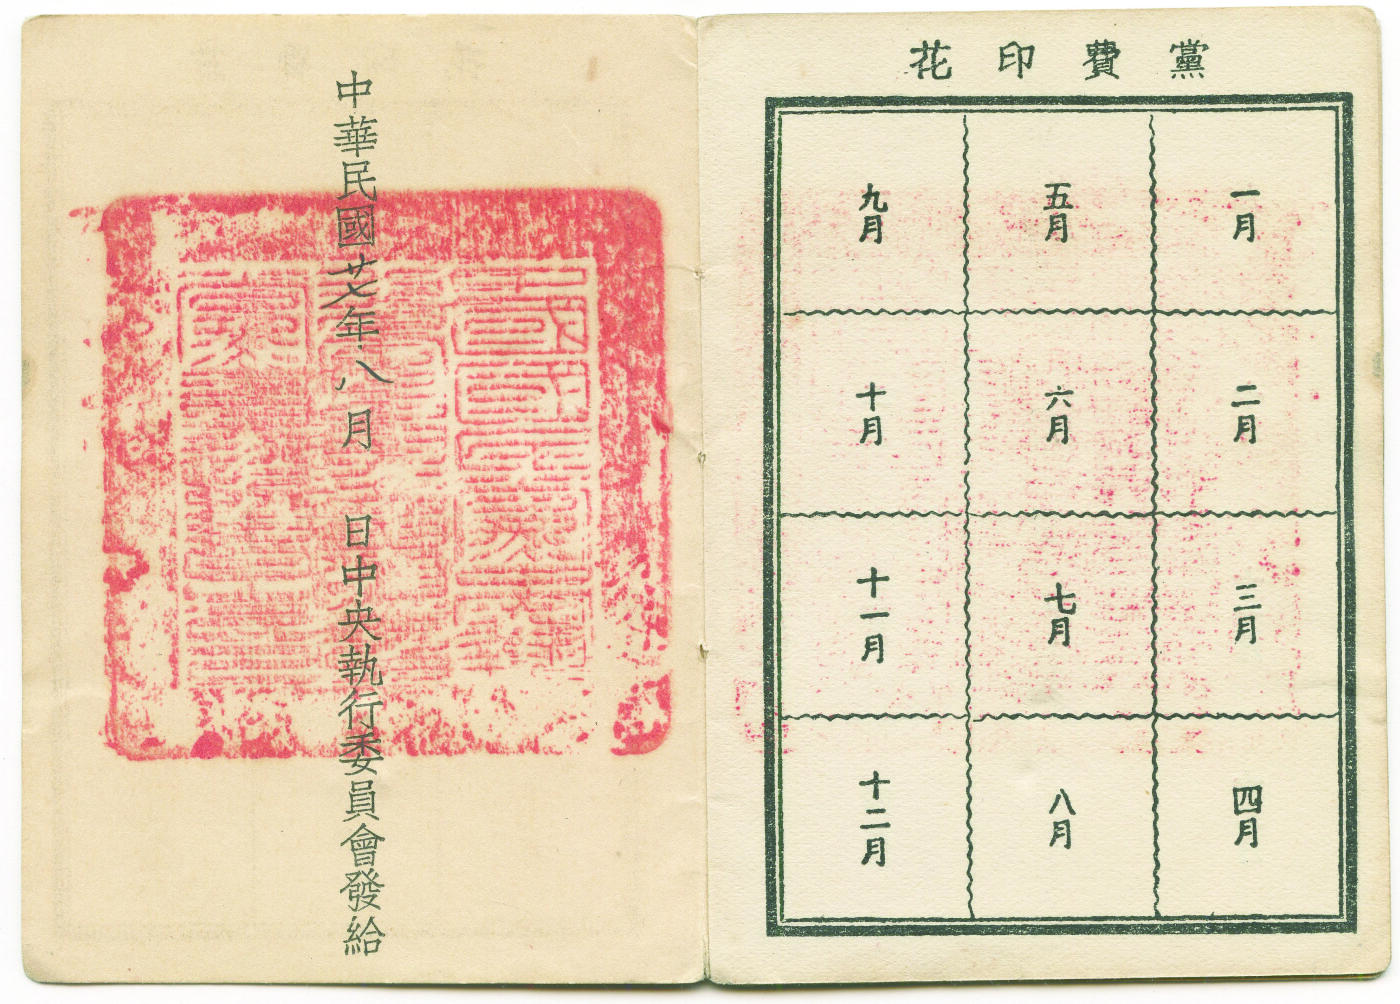 黨費印花
一月
二月
三月
四月
五月
六月
七月
八月
九月
十月
十一月
十二月
中華民國廿七年八月 日中央執行委員會發給